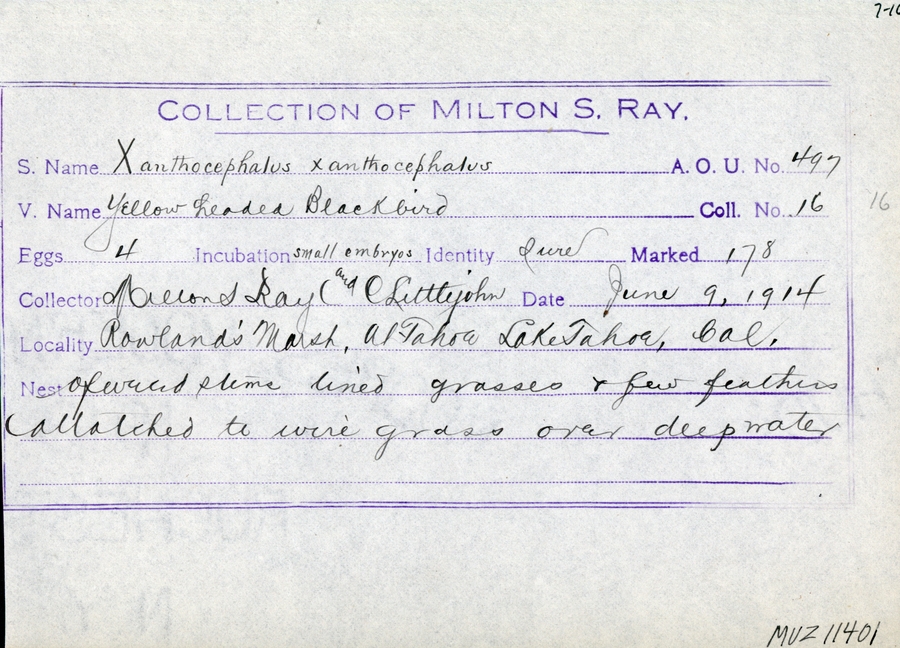 7-16
COLLECTION OF MILTON S. RAY.
S. Name Xanthocephalus xanthocephalus A. O. U. No. 497
V. Name Yellow headed Blackbird Coll. No. 16 16
Eggs 4 Incubation small embryos Identity sure Marked 178
Collector Milton S Ray (and C Littlejohn Date June 9, 1914
Locality Rowland's Marsh, Al Tahoe Lake Tahoe, Cal.
Nest Of weed stems lined grasses & few feathers
(attatched to wire grass over deep water
MVZ 11401